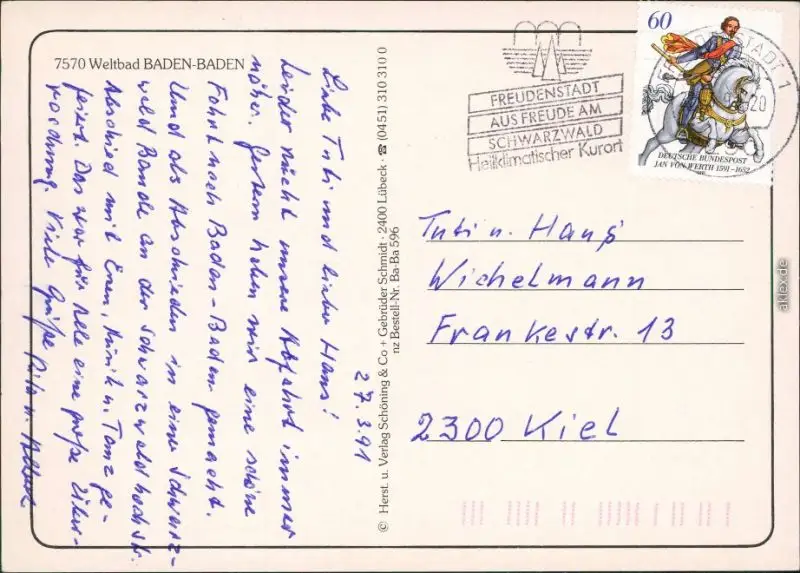 7570 Weltbad BADEN-BADEN
27.3.91
Liebe Tuti und lieber Hans!
Leider rückt unsere Abfahrt immer
näher. Gestern haben wir eine schöne
Fahrt nach Baden-Baden gemacht.
Und als Abschieden in eine Schwarz-
wald Baude an der Schwarzwaldhochstr.
Abschied mit Essen, Musik u. Tanz ge-
feiert. Das war für Alle eine große Über-
raschung. Viele Grüße
© Herst. u. Verlag Schöning & Co + Gebrüder Schmidt · 2400 Lübeck · ☎ (0451) 310 310 0
nz Bestell-Nr. Ba-Ba 596
FREUDENSTADT
AUS FREUDE AM
SCHWARZWALD
Heilklimatischer Kurort
FREUDENSTADT 1
60
DEUTSCHE BUNDESPOST
JAN VON WERTH 1591-1652
Tuti u. Hans
Wichelmann
Frankestr. 13
2300 Kiel
akpool.de